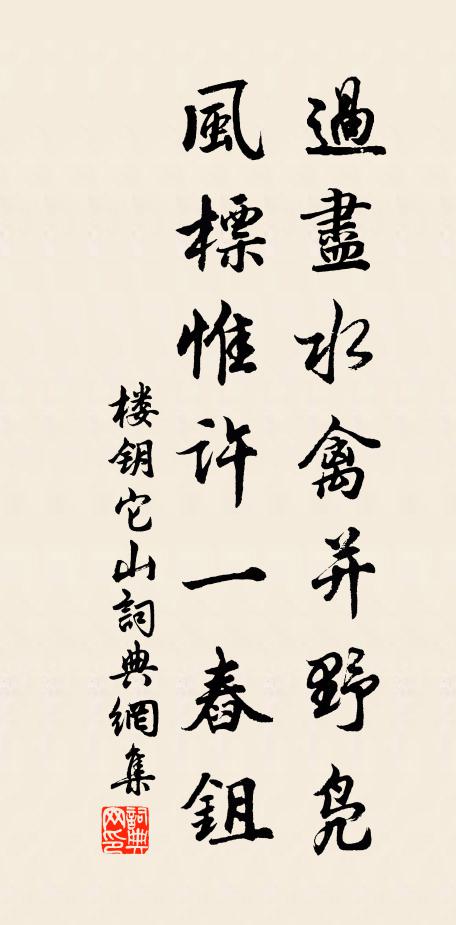 過盡水禽并野凫
風標惟許一舂鉏
楼钥它山詞典網集
詞典網印